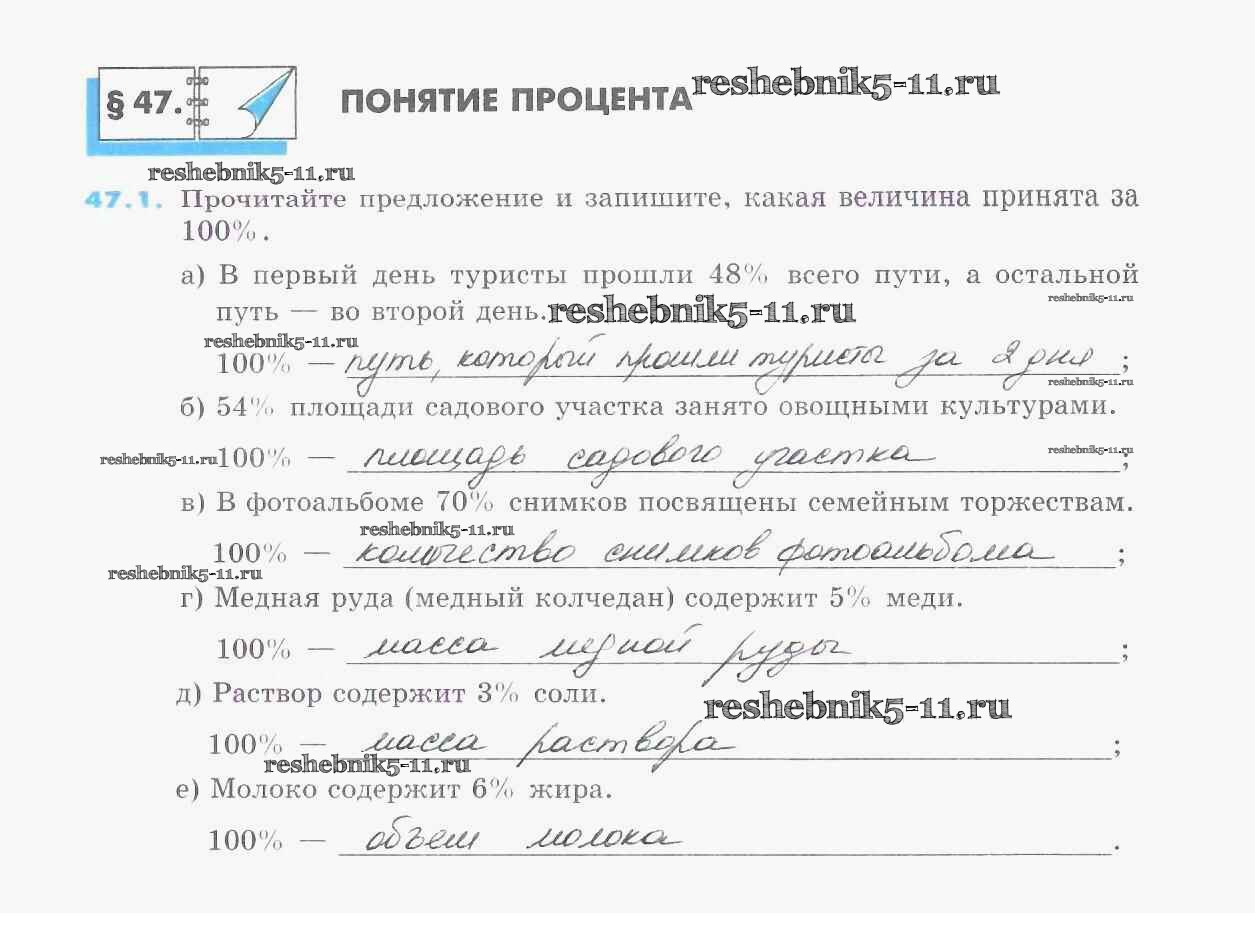 § 47.
ПОНЯТИЕ ПРОЦЕНТА reshebnik5-11.ru
reshebnik5-11.ru
47.1. Прочитайте предложение и запишите, какая величина принята за
100%.
а) В первый день туристы прошли 48% всего пути, а остальной
путь — во второй день. reshebnik5-11.ru reshebnik5-11.ru
reshebnik5-11.ru
100% — путь, который прошли туристы за 2 дня ;
reshebnik5-11.ru
б) 54% площади садового участка занято овощными культурами.
reshebnik5-11.ru 100% — площадь садового участка ; reshebnik5-11.ru
в) В фотоальбоме 70% снимков посвящены семейным торжествам.
reshebnik5-11.ru
100% — количество снимков фотоальбома ;
reshebnik5-11.ru
г) Медная руда (медный колчедан) содержит 5% меди.
100% — масса медной руды ;
д) Раствор содержит 3% соли.
reshebnik5-11.ru
100% — масса раствора ;
reshebnik5-11.ru
е) Молоко содержит 6% жира.
100% — объем молока .